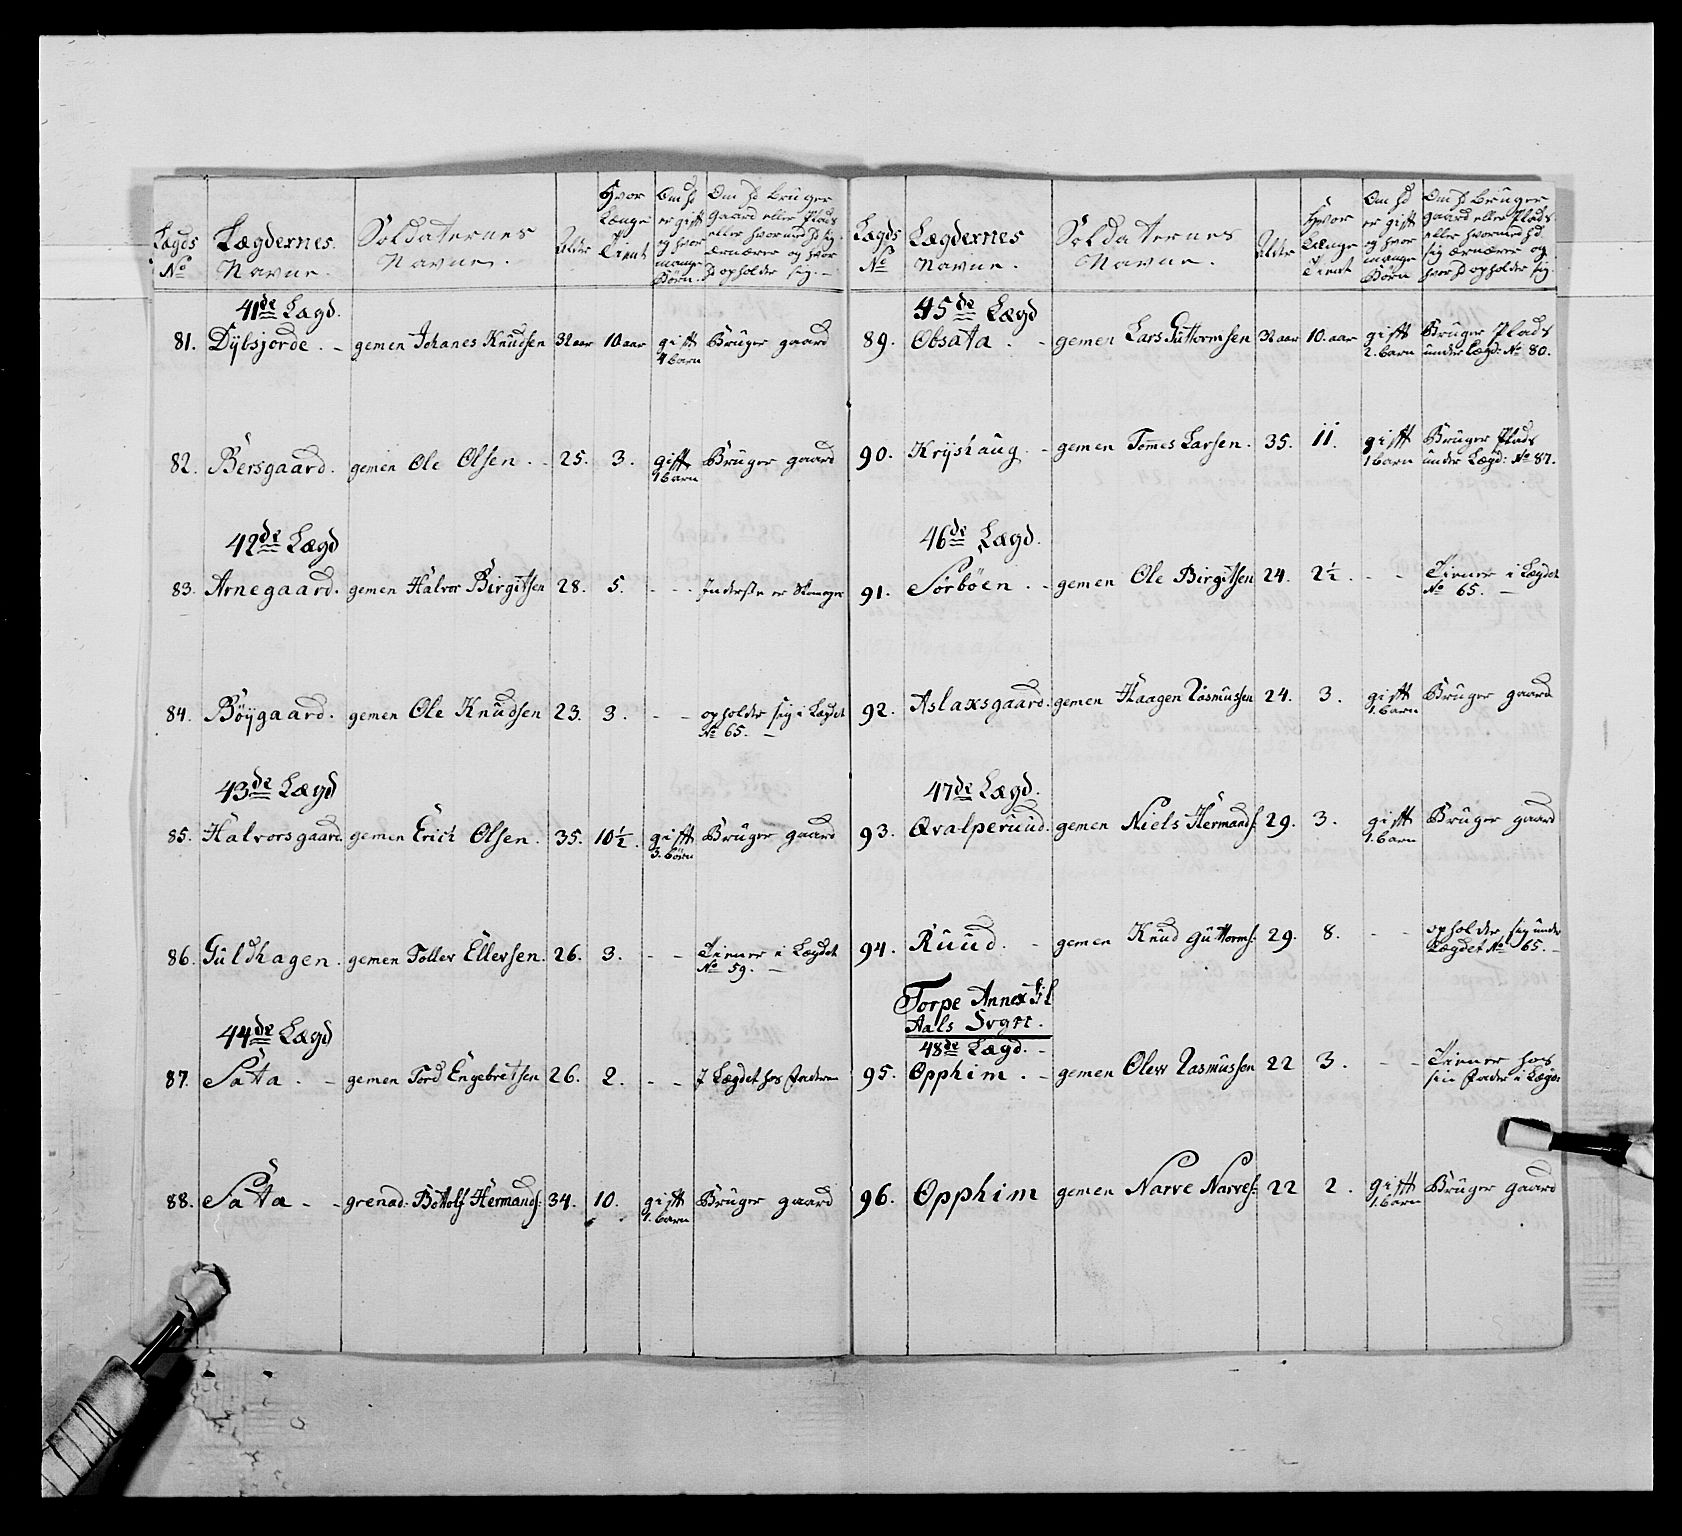 Lægds No | Lægdernes Navne. | Soldaternes Navne. | Alder | Hvor Længe Tient | Om hd er gift og hvor mange Børn. | Om hd Bruger gaard eller Plads eller hvormed hd sig ernærer og hvor hd opholder sig.
41de Lægd.
81. Dÿbsjorde. - gemen Johanes Knudsen 32 aar 10 aar gift 4 barn Bruger gaard
82. Bersgaard. gemen Ole Olsen. - 25. 3. gift 1 barn Bruger gaard
42de Lægd
83. Arnegaard. gemen Halvor Birgitsen 28. 5. - - Inderste er
84. Böÿgaard. gemen Ole Knudsen 23. 3. - - opholder sig i Lægdet No 65. -
43de Lægd
85. Halvorsgaard. gemen Erich Olsen. 35. 10½. gift 3. börn Bruger gaard
86. Guldhagen. gemen Toller Ellevsen. 26. 3. - - Tiener i Lægdet No 59. -
44de Lægd
87. Sata. - gemen Tord Engebretsen 26. 2. - - I Lægdet hos Faderen
88. Sata - - grenad: Bottolf Hermands: 34. 10. gift 1. barn Bruger gaard
Lægds No | Lægdernes Navne. | Soldaternes Navne. | Alder | Hvor Længe Tient | Om hd er gift og hvor mange Börn | Om hd Bruger gaard eller Plads eller hvormed hd sig ernærer og hvor hd opholder sig.
45de Lægd
89. Obsata. - gemen Lars Guttormsen 32 aar 10. aar gift 2. barn Bruger Plads under Lægd: No 80.
90. Krÿshaug. - gemen Tomes Larsen. 35. 11. gift 1 barn Bruger Plads under Lægd: No 87.
46de Lægd.
91. Sörböen. - gemen Ole Birgitsen 24. 2½. - - Tiener i Lægdet No 65. -
92. Aslaxsgaard. gemen Haagen Rasmussen 24. 3. gift 1. barn Bruger gaard
47de Lægd.
93. Qvalperuud. gemen Niels Hermands: 29. 3. gift 1. barn Bruger gaard
94. Ruud. - gemen Knud Guttorms: 29. 8. - - opholder sig under Lægdet No 65. -
Torpe Annex til
Aals Sogn.
48de Lægd. -
95. Opphim. - gemen Olew Rasmussen 22 3. - - Tiener hos sin Fader i Lægdet
96. Opphim gemen Narve Narves: 22 2. gift 1. barn Bruger gaard